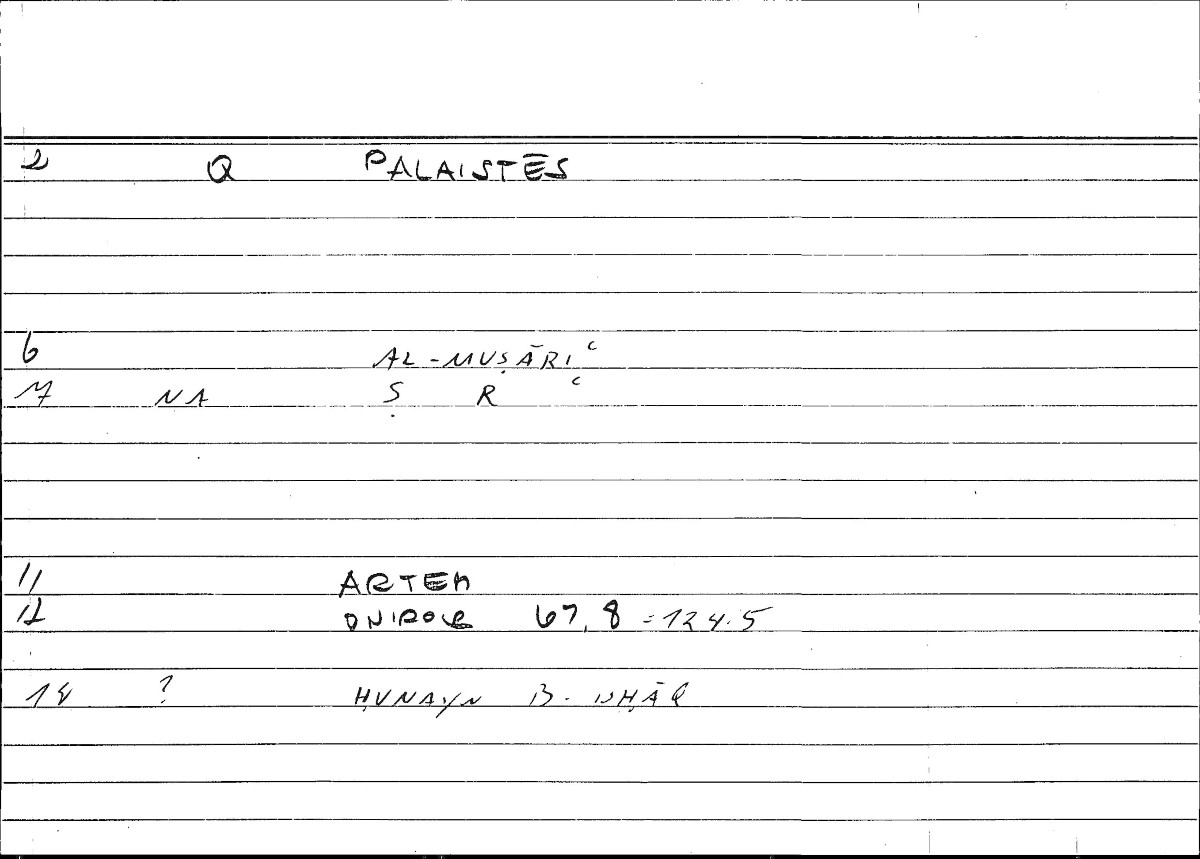 2 Q PALAISTĒS
6 AL-MUṢĀRIʿ
7 NA Ṣ R ʿ
11 ARTEM
12 ONIROCR 67,8 = 124.5
14 ? ḤUNAYN B. ISḤĀQ